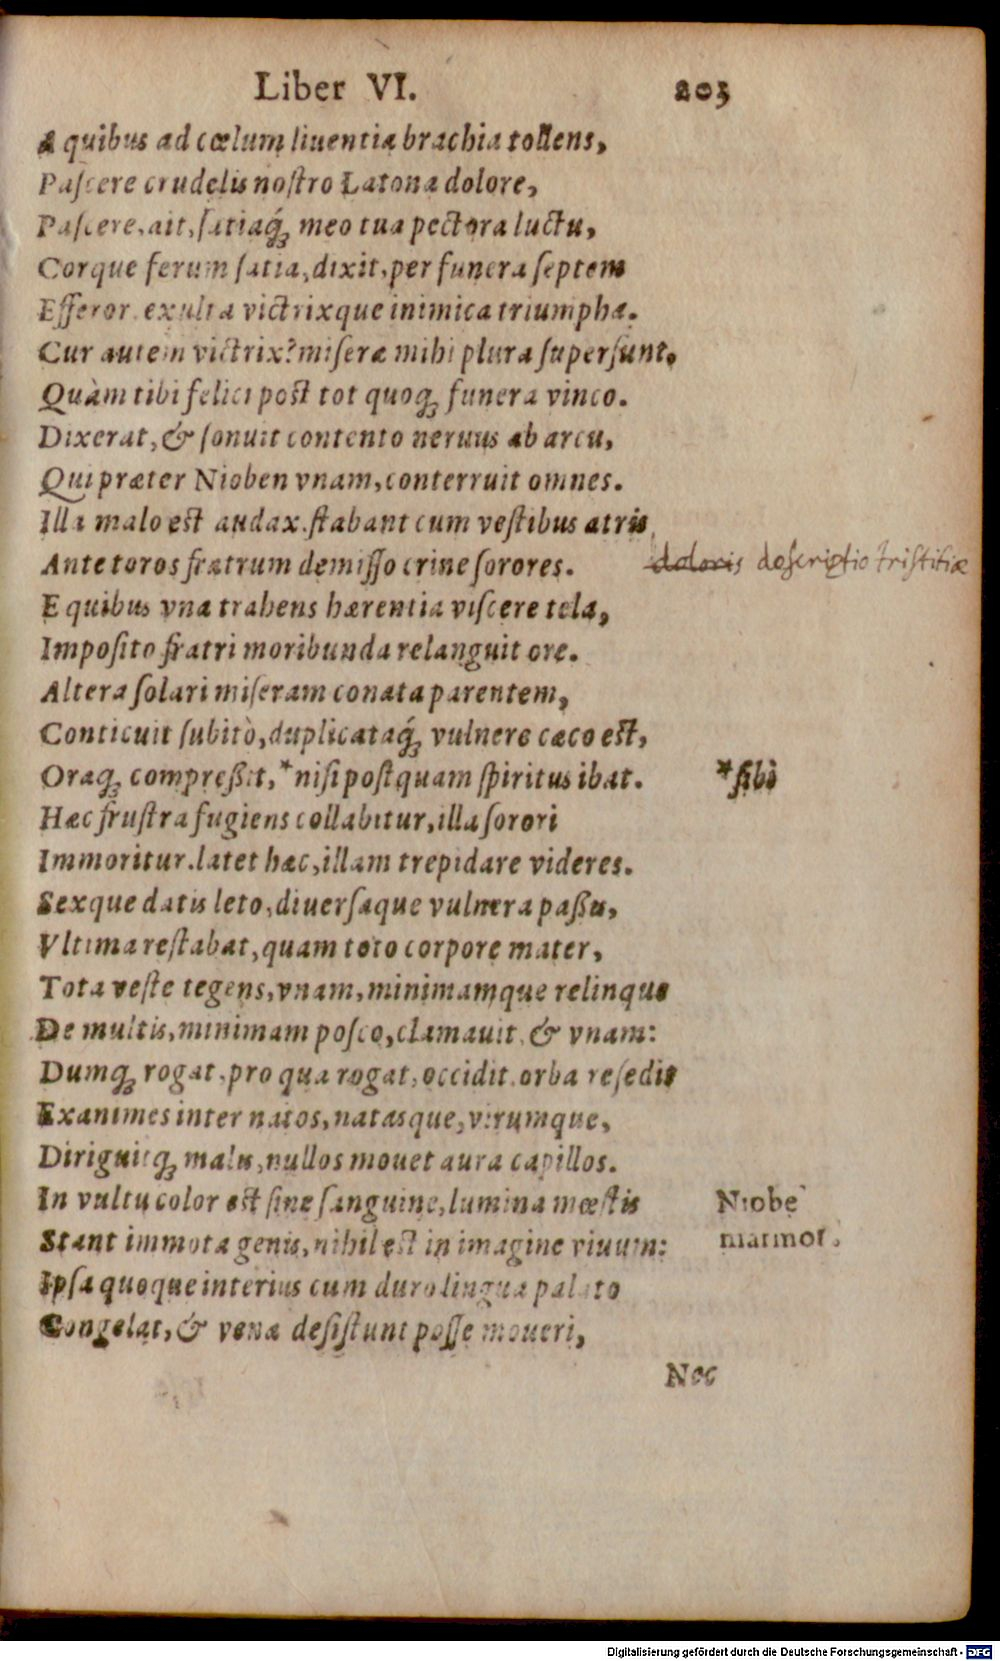 Liber VI. 203
A quibus ad cœlum liuentia brachia tollens,
Paſcere crudelis noſtro Latona dolore,
Paſcere, ait, ſatiaq́; meo tua pectora luctu,
Corque ferum ſatia, dixit, per funera ſeptem
Efferor. exulta victrixque inimica triumpha.
Cur autem victrix? miſeræ mihi plura ſuperſunt,
Quàm tibi felici post tot quoq; funera vinco.
Dixerat, & ſonuit contento neruus ab arcu,
Qui præter Nioben vnam, conterruit omnes.
Illa malo est audax. ſtabant cum veſtibus atris
Ante toros fratrum demiſſo crine ſorores.
doloris deſcriptio triſtitiæ
E quibus vna trahens hærentia viſcere tela,
Impoſito fratri moribunda relanguit ore.
Altera ſolari miſeram conata parentem,
Conticuit ſubitò, duplicataq́; vulnere cæco est,
Oraq; compreßit, *niſi poſtquam ſpiritus ibat. *ſibi
Hæc fruſtra fugiens collabitur, illa ſorori
Immoritur. latet hæc, illam trepidare videres.
Sexque datis leto, diuerſaque vulnera paßis,
Vltima reſtabat, quam toto corpore mater,
Tota veſte tegens, vnam, minimamque relinque
De multis, minimam poſco, clamauit, & vnam:
Dumq; rogat, pro qua rogat, occidit. orba reſedit
Exanimes inter natos, natasque, virumque,
Diriguitq; malis, nullos mouet aura capillos.
In vultu color est ſine ſanguine, lumina mœſtis Niobe
Stant immota genis, nihil est in imagine viuum: marmor.
Ipſa quoque interius cum duro lingua palato
Congelat, & venæ deſiſtunt poſſe moueri,
Nec
Digitalisierung gefördert durch die Deutsche Forschungsgemeinschaft - DFG